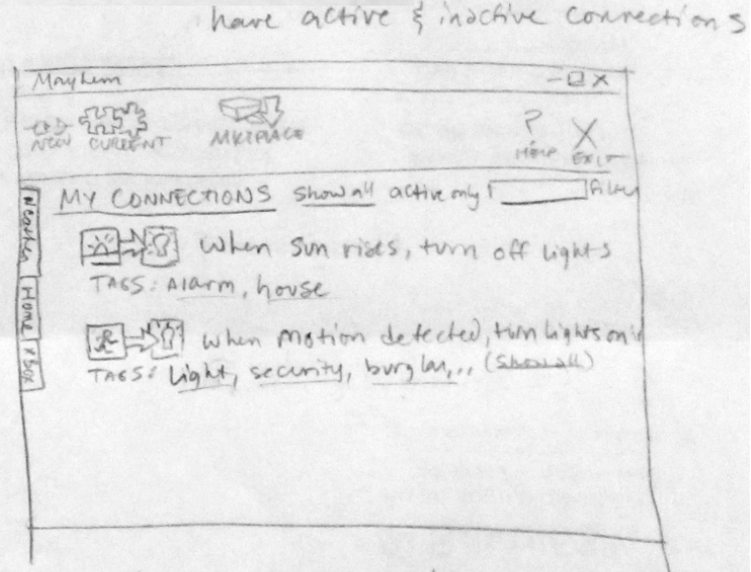 have active & inactive connections
Mayhem
NEW CURRENT MKTPLACE ? HELP X EXIT
MY CONNECTIONS show all active only filter
Weather
Home
XBox
when sun rises, turn off lights
TAGS: Alarm, house
when motion detected, turn lights on
TAGS: Light, security, burglar,... (show all)